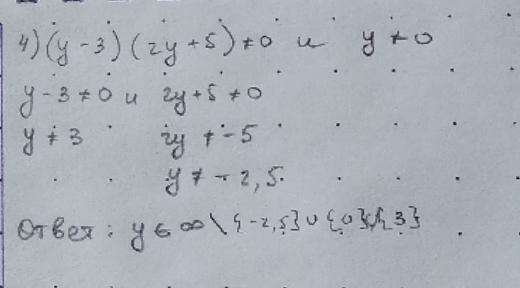 4) (y - 3) (2y + 5) ≠ 0 и y ≠ 0
y - 3 ≠ 0 и 2y + 5 ≠ 0
y ≠ 3 2y ≠ -5
y ≠ -2,5.
Ответ: y ∈ ∞ \ {-2,5} ∪ {0} {3}